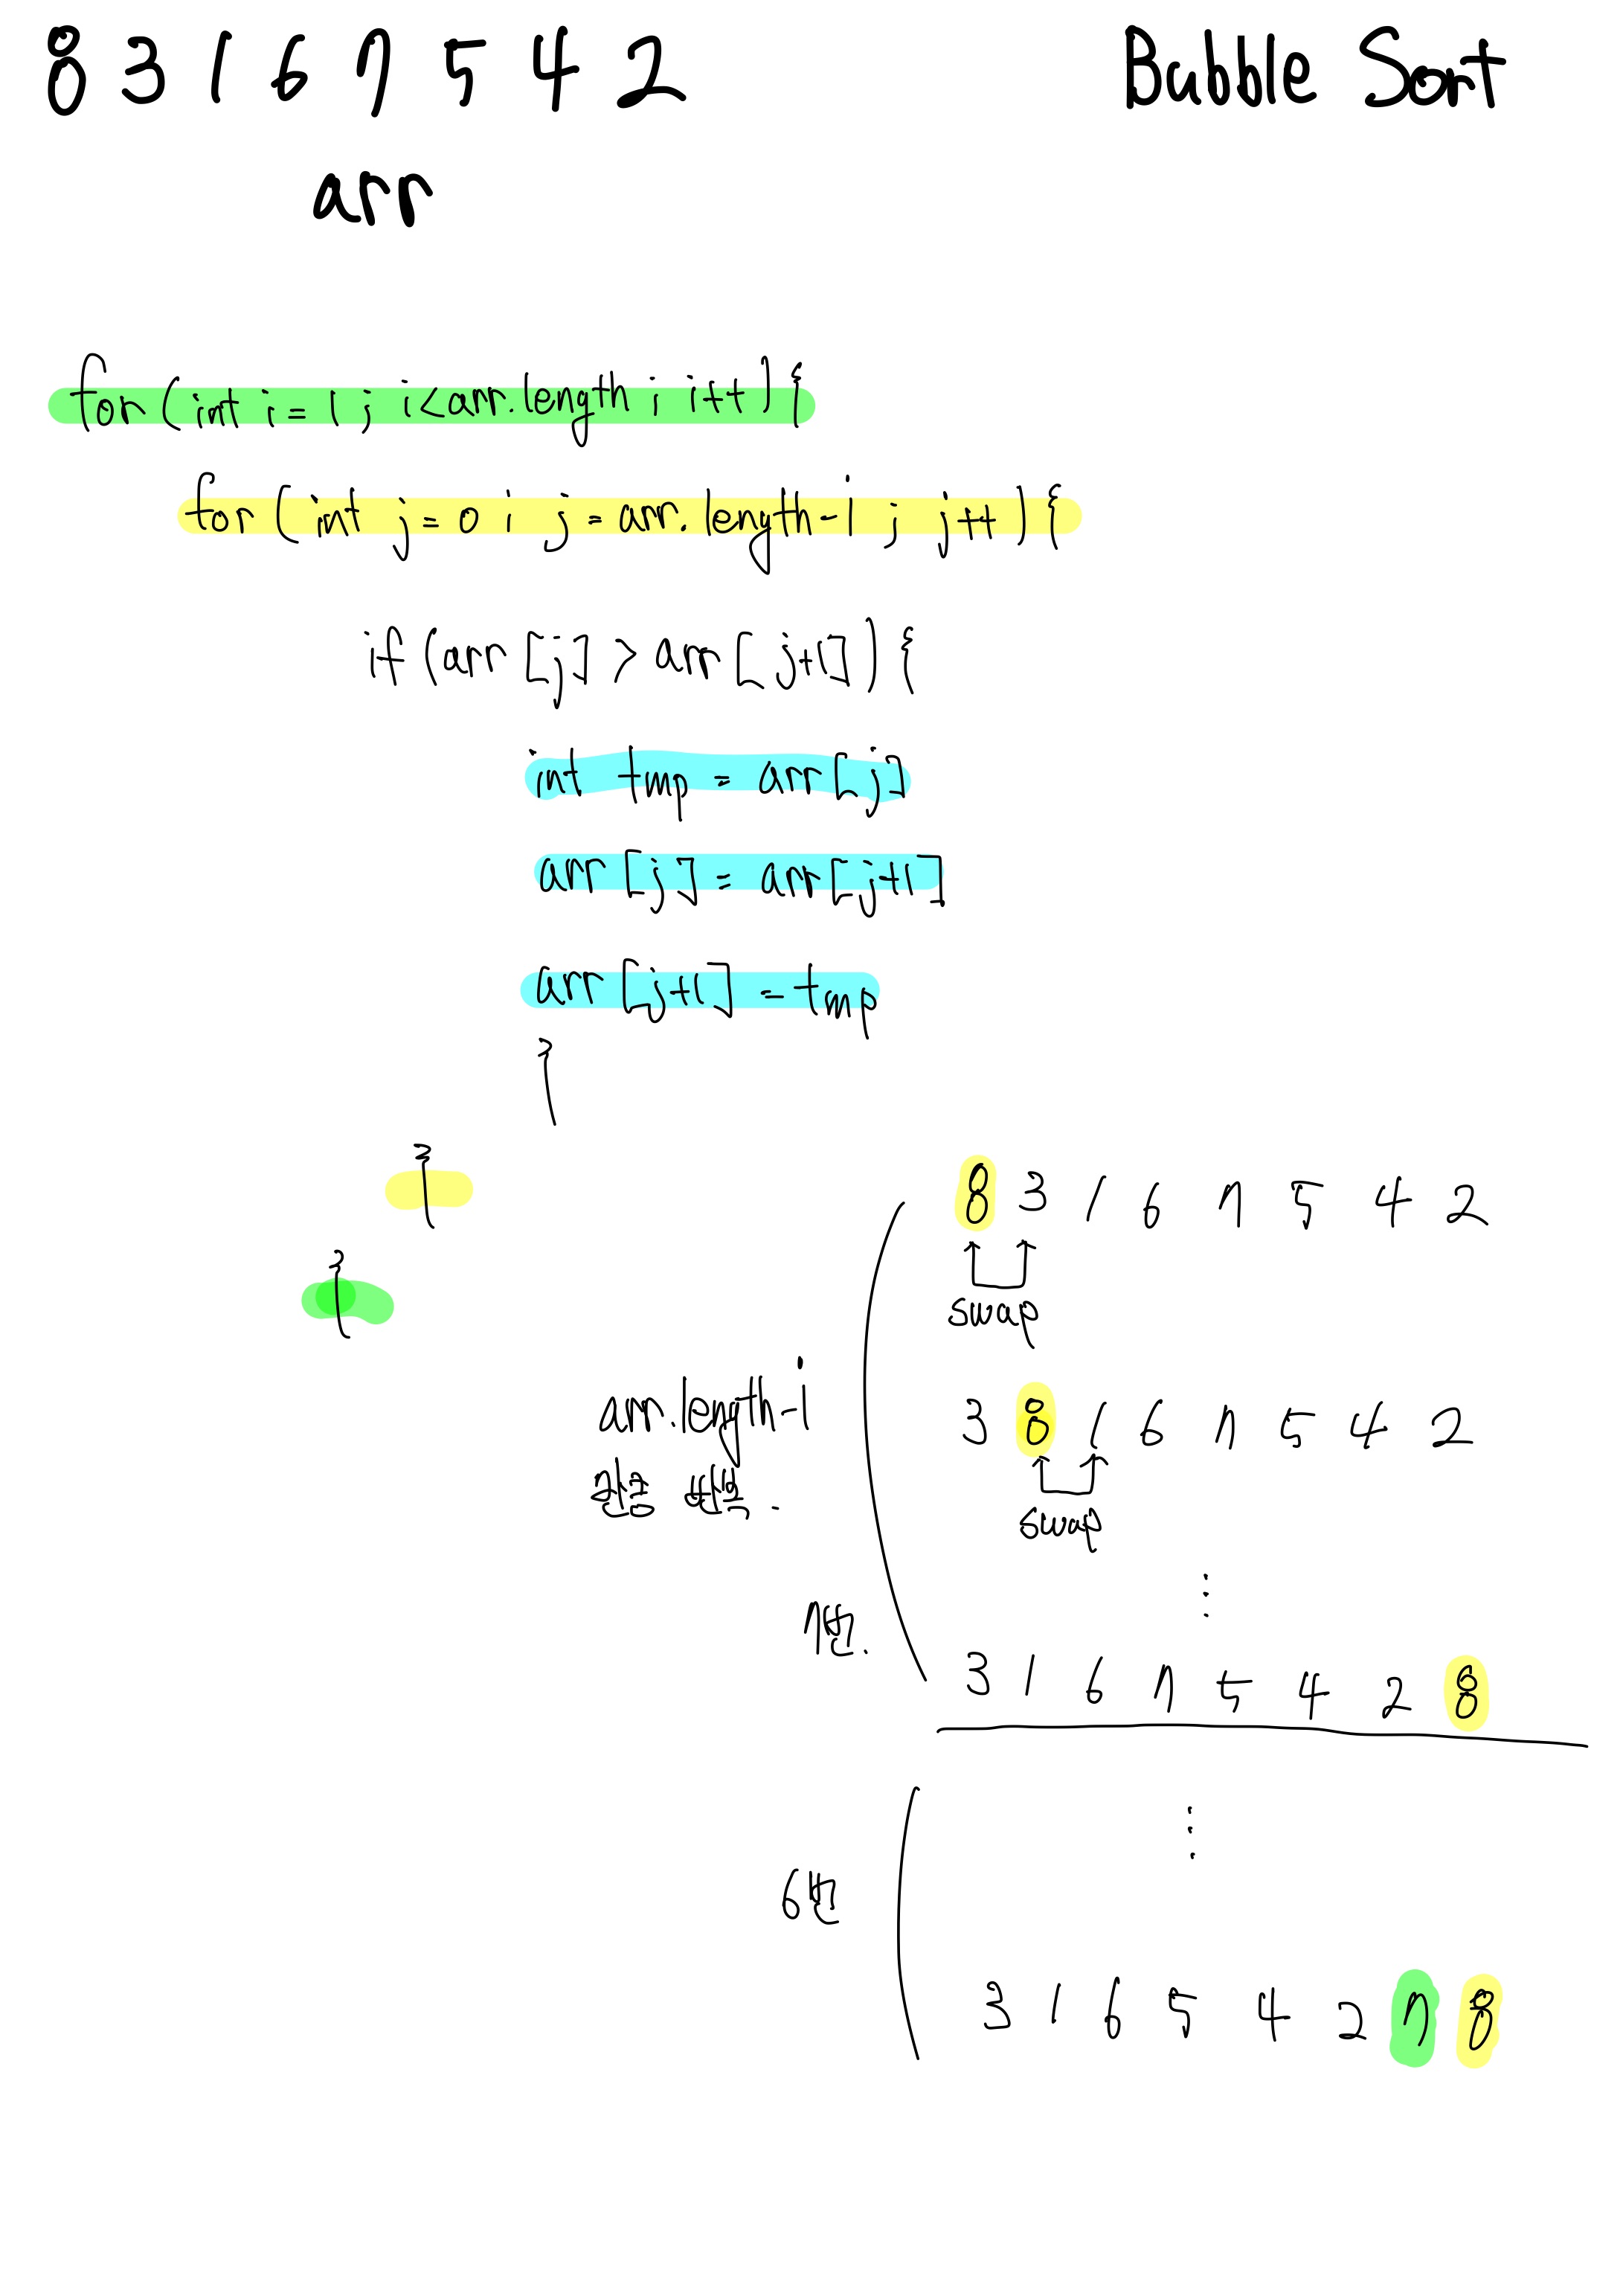 8 3 1 6 7 5 4 2 Bubble Sort
arr
for ( int i = 1 ; i<arr.length ; i++){
for ( int j = 0 ; j = arr.length-i ; j++ ){
if (arr [j] > arr [j+1]) {
int tmp = arr[j]
arr [j] = arr[j+1]
arr [j+1] = tmp
}
}
}
8 3 1 6 7 5 4 2
swap
arr.length-i
만큼 반복.
3 8 1 6 7 5 4 2
swap
⋮
7번.
3 1 6 7 5 4 2 8
⋮
6번
3 1 6 5 4 2 7 8